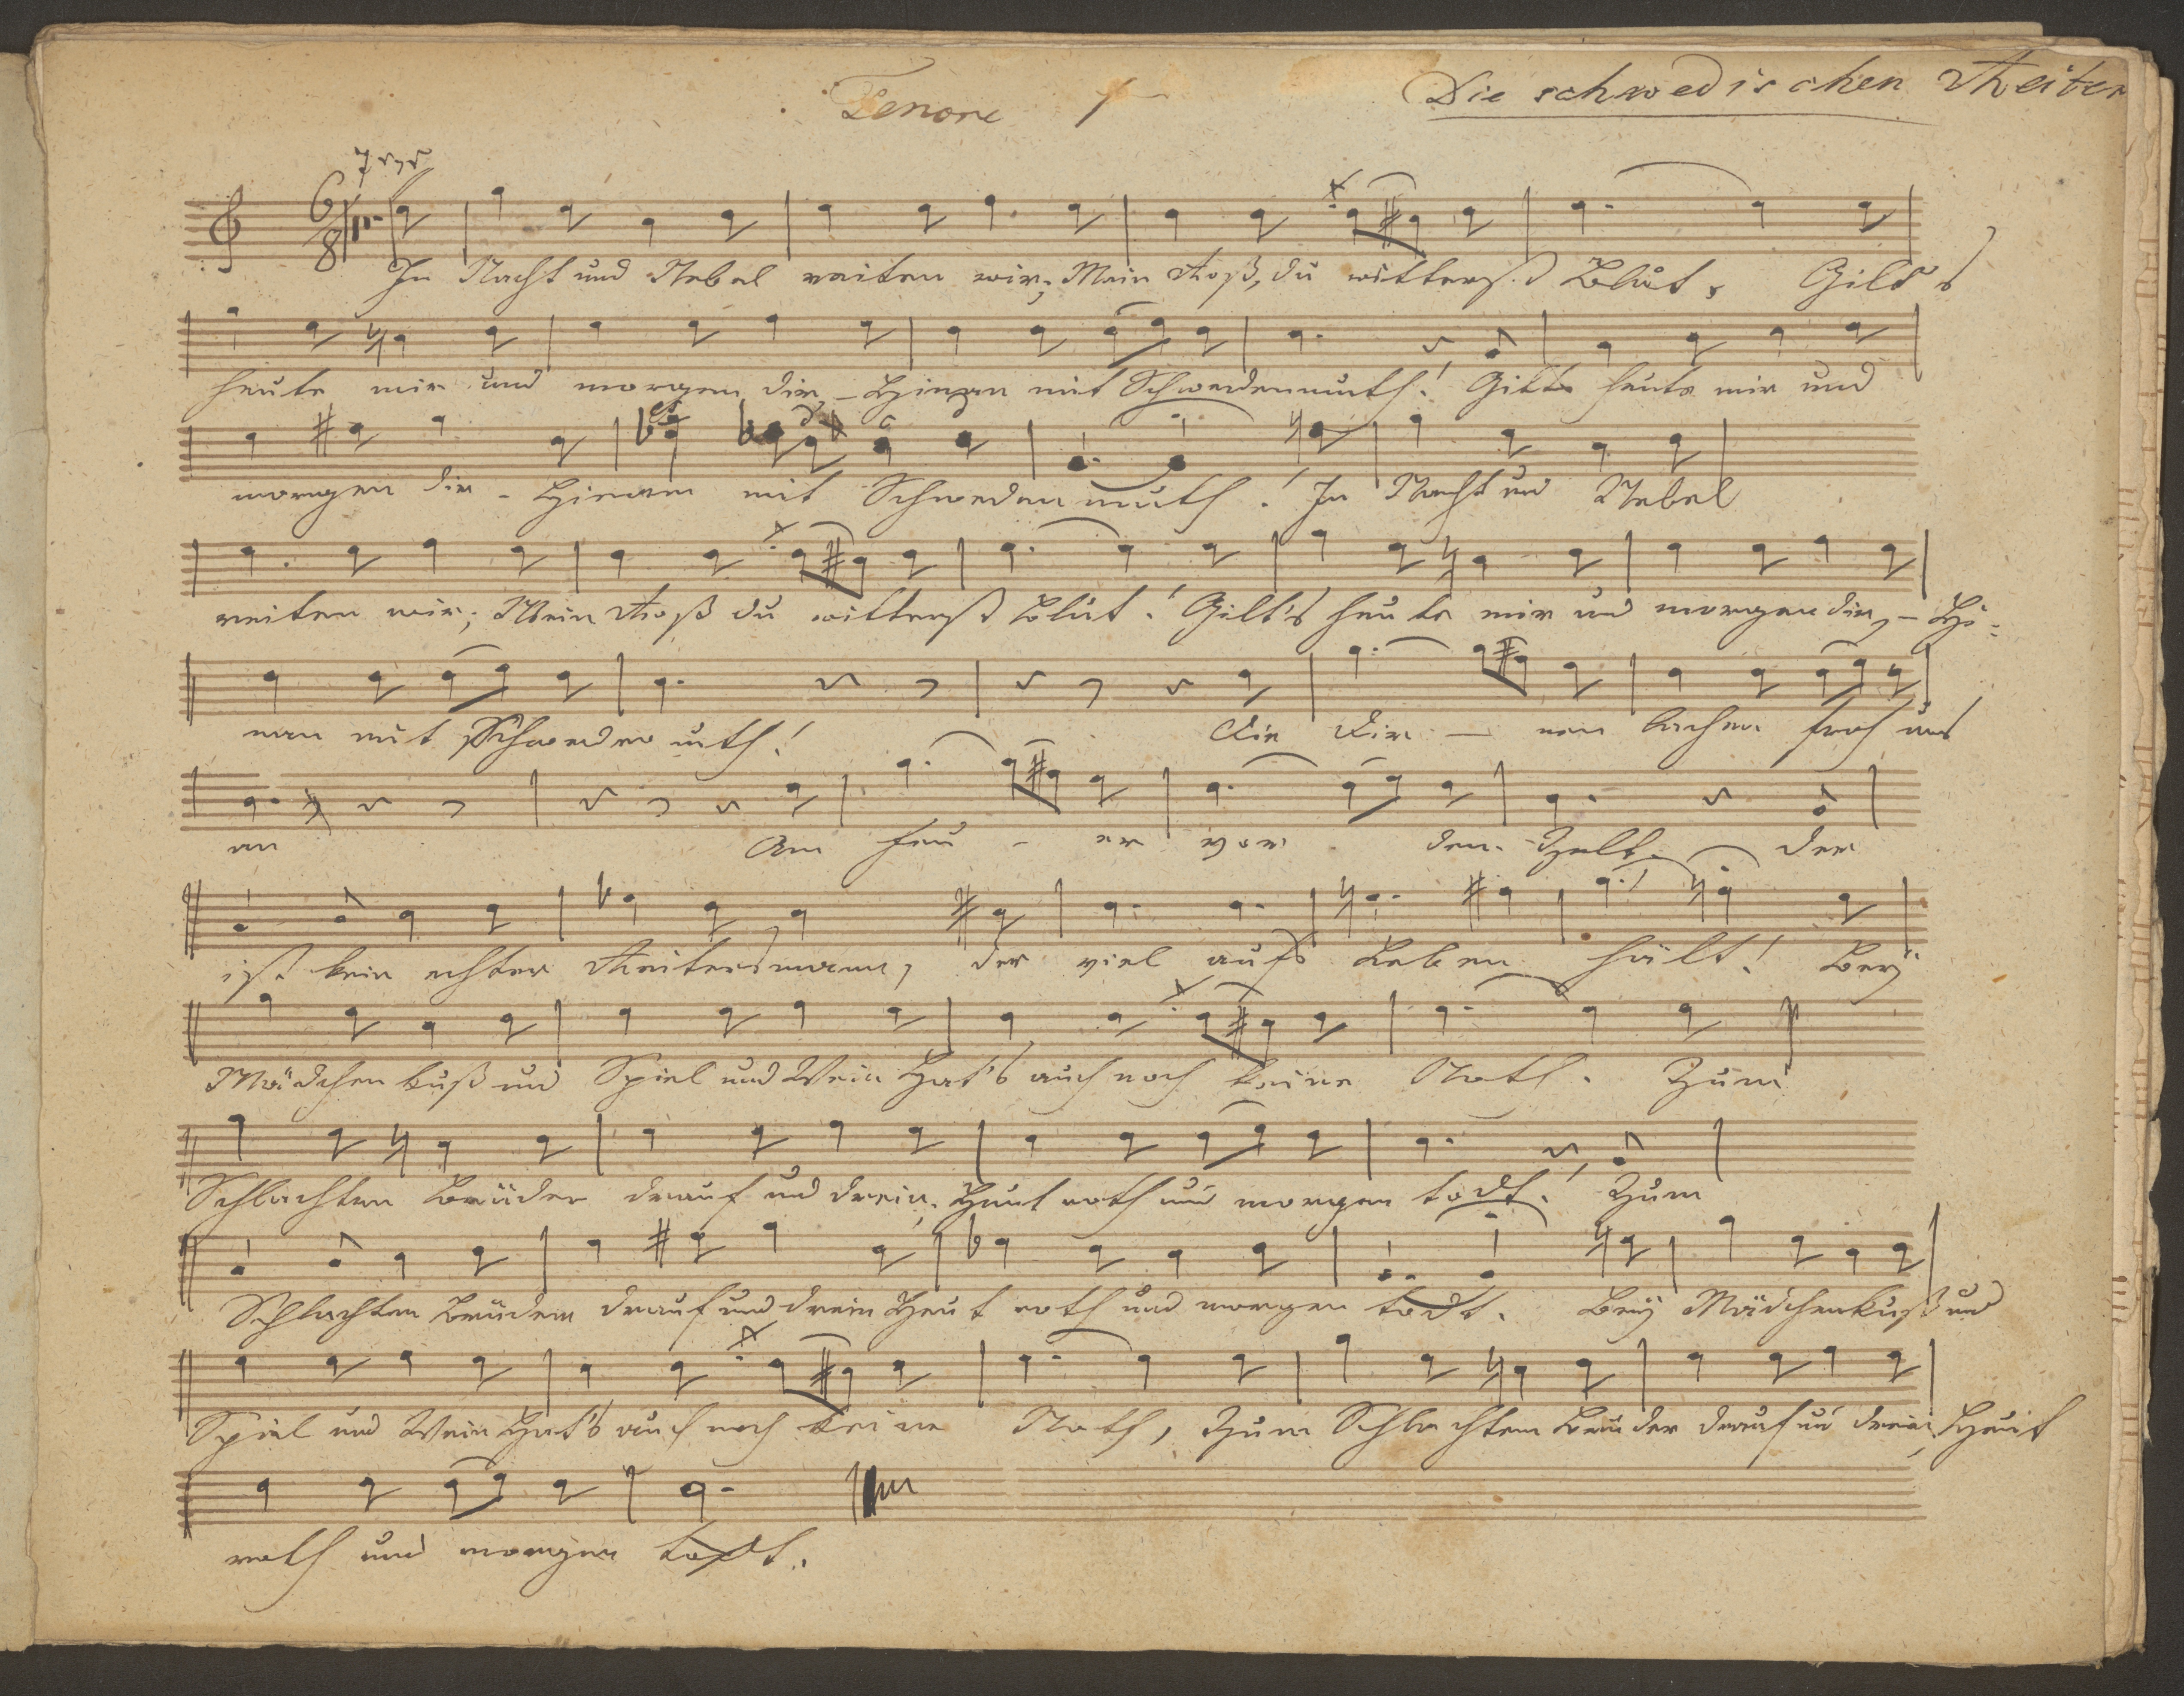 Tenore 1
Die schwedischen Reiter
6/8
In Nacht und Nebel reiten wir; Mein Roß, du witterst Blut, Gilt's
heute mir und morgen dir, - Hinan mit Schwedenmuth! Gilts heute mir und
morgen dir - Hinan mit Schwedenmuth! In Nacht und Nebel
reiten wir; Mein Roß du witterst Blut! Gilt's heute mir und morgen dir, - Hi=
nan mit Schwedenmuth! Die Dir - nen lachen froh uns
an Am Feu - er vor dem Zelt. der
ist kein echter Reitersmann, der viel aufs Leben hält! Bey
Mädchenkuß und Spiel und Wein Hat's auch noch keine Noth. Zum
Schlachten Brüder drauf und drein, Heut roth und morgen todt! Zum
Schlachten Brüder drauf und drein Heut roth und morgen todt. Bey Mädchenkuß und
Spiel und Wein Hat's auch noch keine Noth, Zum Schlachten Brüder drauf un drein, Heut
roth und morgen todt.